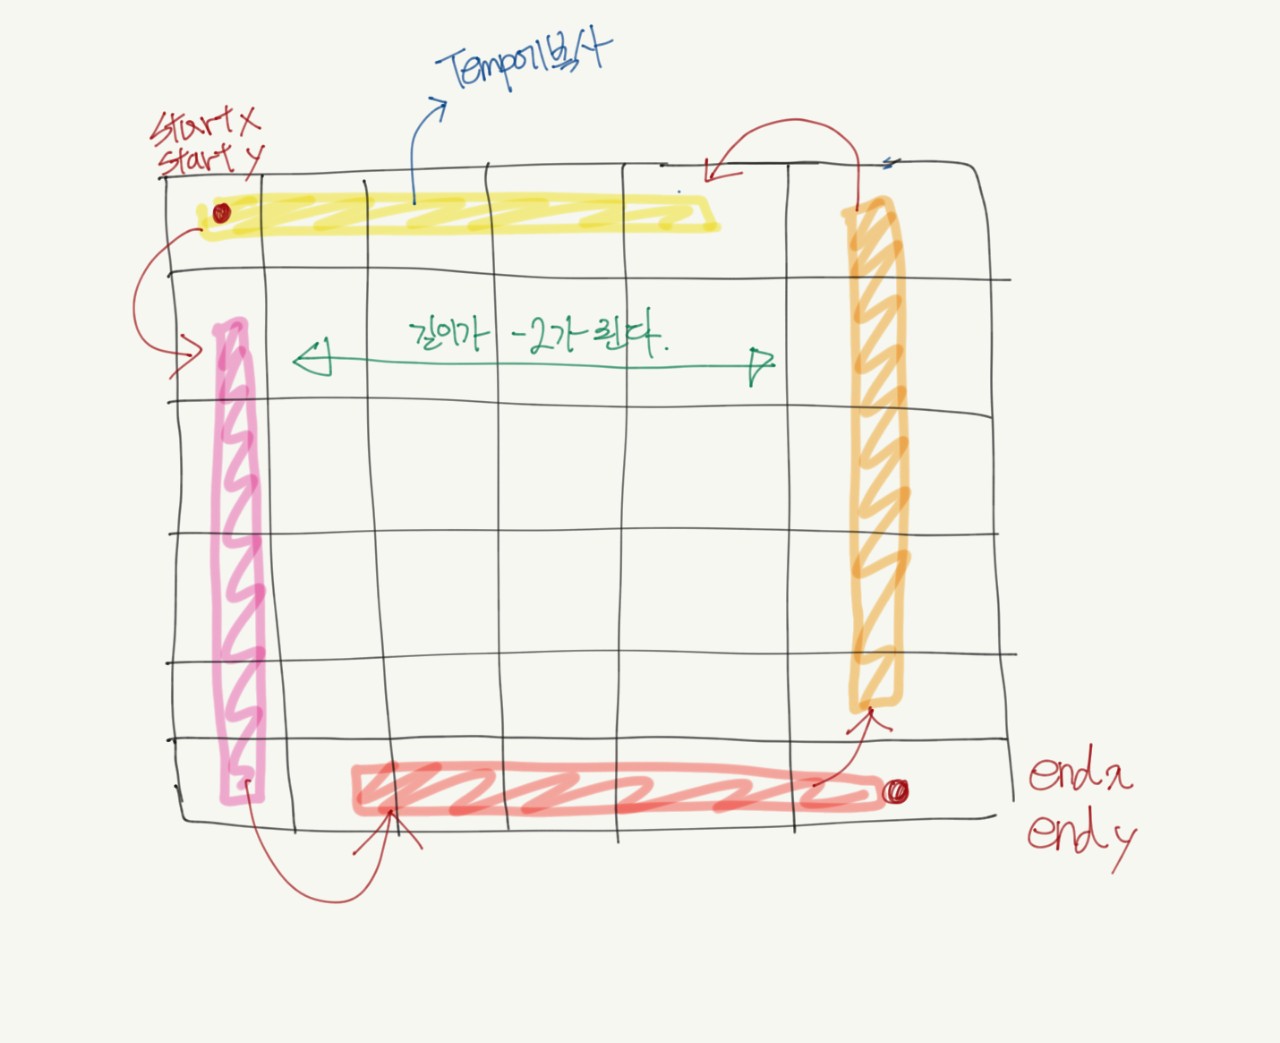 Temp에복사
startx
starty
길이가 -2가 된다.
endx
endy